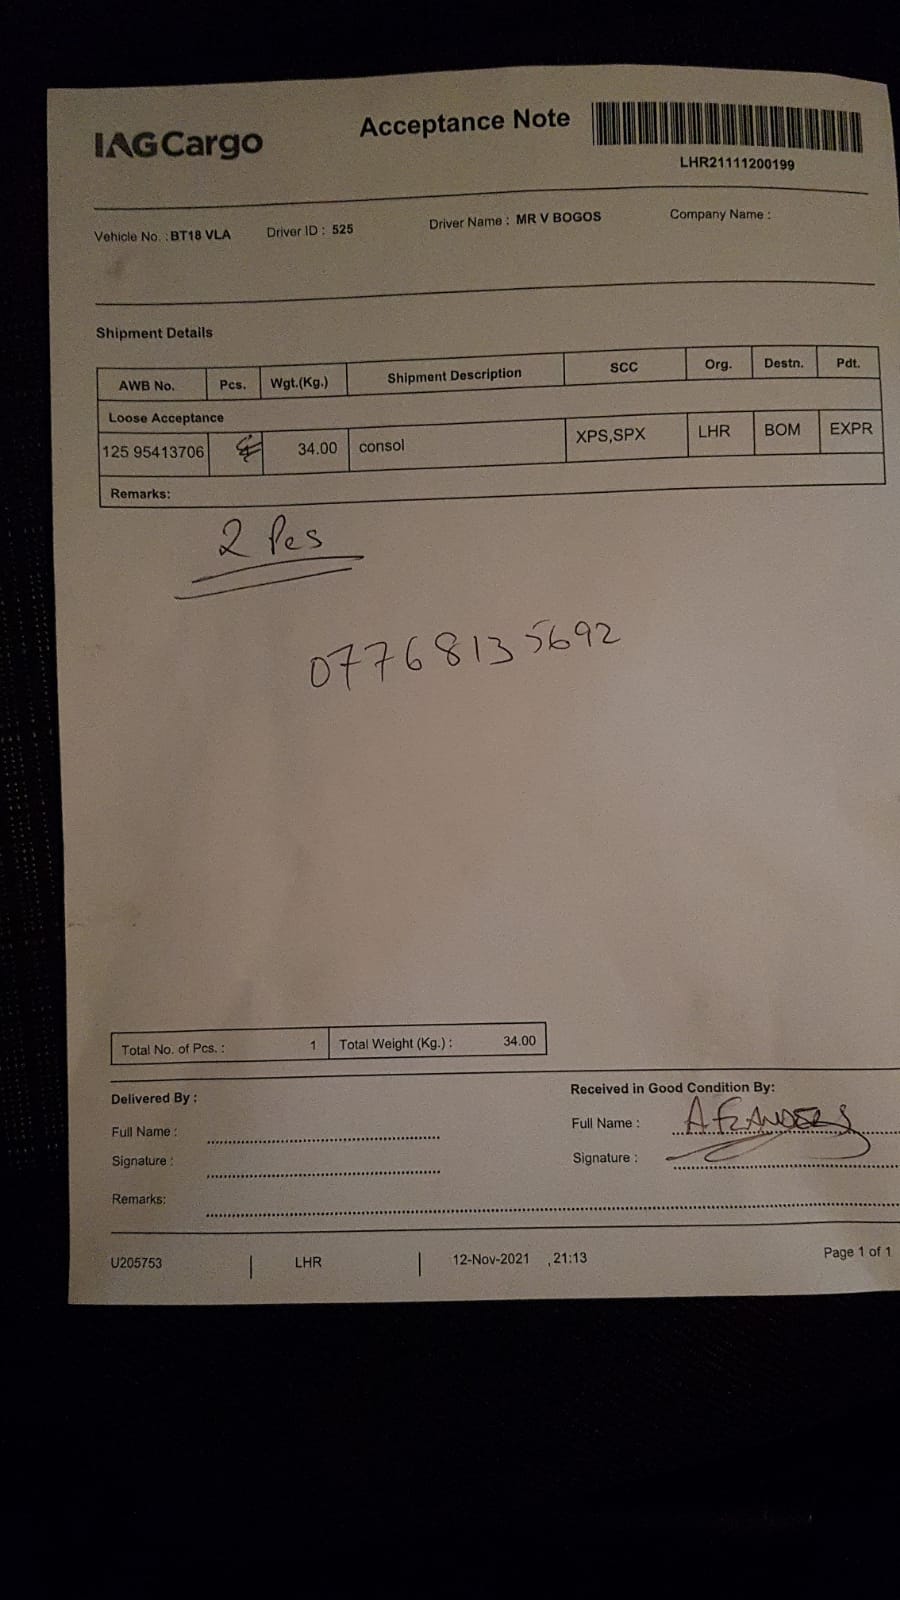 IAGCargo
Acceptance Note
LHR21111200199
Vehicle No. : BT18 VLA Driver ID : 525 Driver Name : MR V BOGOS Company Name :
Shipment Details
AWB No. Pcs. Wgt.(Kg.) Shipment Description SCC Org. Destn. Pdt.
Loose Acceptance
125 95413706 34.00 consol XPS,SPX LHR BOM EXPR
Remarks:
2 Pcs
07768135692
Total No. of Pcs. : 1 Total Weight (Kg.) : 34.00
Delivered By :
Full Name :
Signature :
Remarks:
Received in Good Condition By:
Full Name :
Signature :
U205753 | LHR | 12-Nov-2021 , 21:13 Page 1 of 1